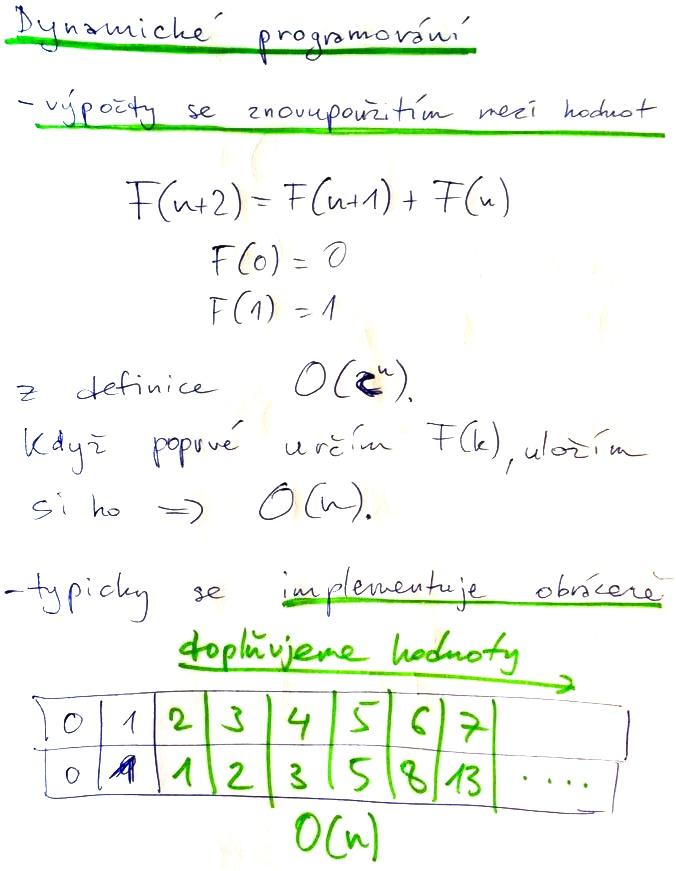 Dynamické programování
- výpočty se znovupoužitím mezi hodnot
F(n+2) = F(n+1) + F(n)
F(0) = 0
F(1) = 1
z definice O(cⁿ).
Když poprvé určím F(k), uložím
si ho => O(n).
- typicky se implementuje obráceně
doplňujeme hodnoty
0 1 2 3 4 5 6 7
0 1 1 2 3 5 8 13 ....
O(n)